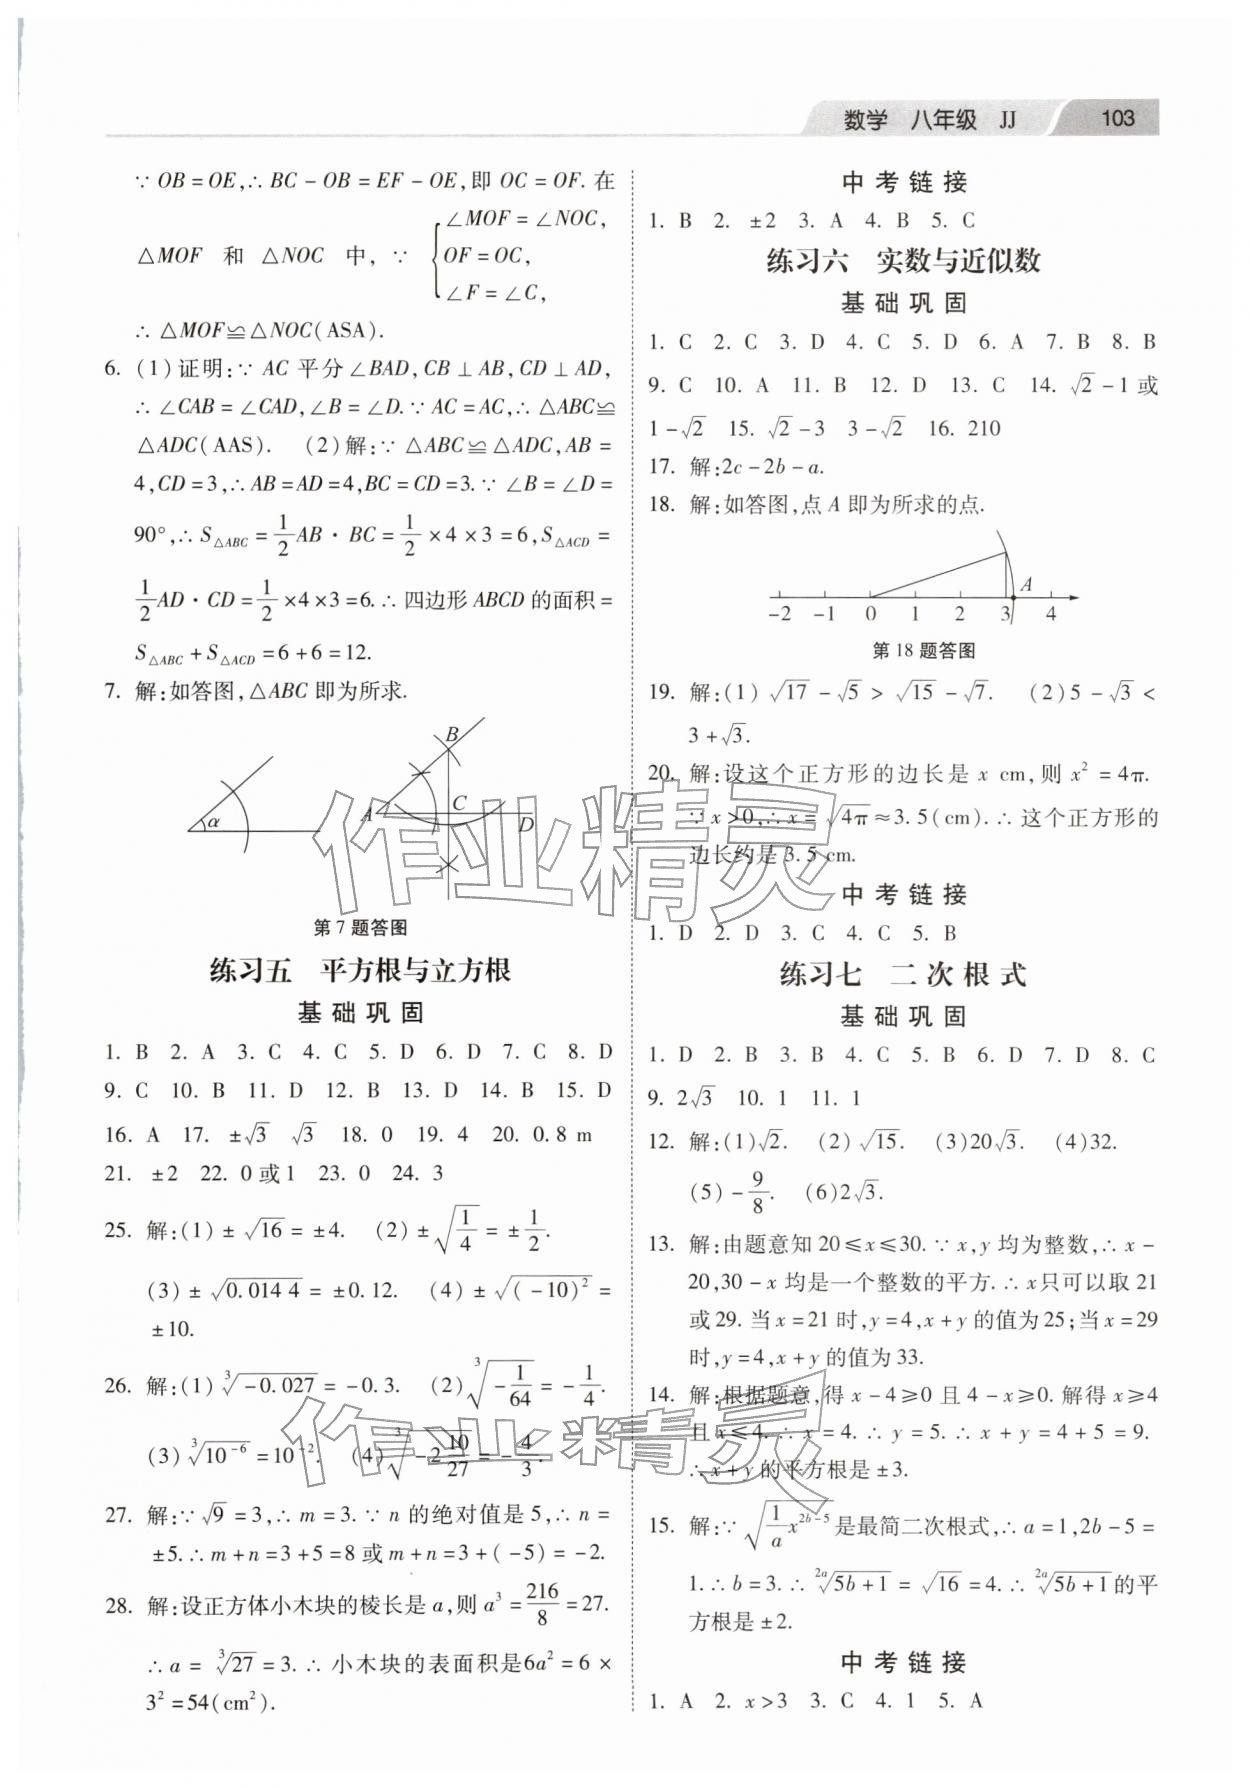 数学 八年级 JJ 103
∵OB=OE,∴BC-OB=EF-OE,即OC=OF.在
△MOF 和 △NOC 中,∵ {∠MOF=∠NOC,
OF=OC,
∠F=∠C,
∴△MOF≌△NOC(ASA).
6. (1)证明:∵AC平分∠BAD,CB⊥AB,CD⊥AD,
∴∠CAB=∠CAD,∠B=∠D.∵AC=AC,∴△ABC≌
△ADC(AAS). (2)解:∵△ABC≌△ADC,AB=
4,CD=3,∴AB=AD=4,BC=CD=3.∵∠B=∠D=
90°,∴S△ABC=1/2AB·BC=1/2×4×3=6,S△ACD=
1/2AD·CD=1/2×4×3=6.∴四边形ABCD的面积=
S△ABC+S△ACD=6+6=12.
7. 解:如答图,△ABC即为所求.
α A B C D
第7题答图
练习五 平方根与立方根
基础巩固
1. B 2. A 3. C 4. C 5. D 6. D 7. C 8. D
9. C 10. B 11. D 12. B 13. D 14. B 15. D
16. A 17. ±√3 √3 18. 0 19. 4 20. 0.8 m
21. ±2 22. 0或1 23. 0 24. 3
25. 解:(1)±√16=±4. (2)±√(1/4)=±1/2.
(3)±√0.014 4=±0.12. (4)±√(-10)²=
±10.
26. 解:(1)³√-0.027=-0.3. (2)³√(-1/64)=-1/4.
(3)³√10⁻⁶=10⁻². (4)³√(-2 10/27)=-4/3.
27. 解:∵√9=3,∴m=3.∵n的绝对值是5,∴n=
±5.∴m+n=3+5=8或m+n=3+(-5)=-2.
28. 解:设正方体小木块的棱长是a,则a³=216/8=27.
∴a=³√27=3.∴小木块的表面积是6a²=6×
3²=54(cm²).
中考链接
1. B 2. ±2 3. A 4. B 5. C
练习六 实数与近似数
基础巩固
1. C 2. C 3. D 4. C 5. D 6. A 7. B 8. B
9. C 10. A 11. B 12. D 13. C 14. √2-1或
1-√2 15. √2-3 3-√2 16. 210
17. 解:2c-2b-a.
18. 解:如答图,点A即为所求的点.
A
-2 -1 0 1 2 3 4
第18题答图
19. 解:(1)√17-√5>√15-√7. (2)5-√3<
3+√3.
20. 解:设这个正方形的边长是x cm,则x²=4π.
∵x>0,∴x=√4π≈3.5(cm).∴这个正方形的
边长约是3.5 cm.
中考链接
1. D 2. D 3. C 4. C 5. B
练习七 二次根式
基础巩固
1. D 2. B 3. B 4. C 5. B 6. D 7. D 8. C
9. 2√3 10. 1 11. 1
12. 解:(1)√2. (2)√15. (3)20√3. (4)32.
(5)-9/8. (6)2√3.
13. 解:由题意知20≤x≤30.∵x,y均为整数,∴x-
20,30-x均是一个整数的平方.∴x只可以取21
或29.当x=21时,y=4,x+y的值为25;当x=29
时,y=4,x+y的值为33.
14. 解:根据题意,得x-4≥0且4-x≥0.解得x≥4
且x≤4.∴x=4.∴y=5.∴x+y=4+5=9.
∴x+y的平方根是±3.
15. 解:∵√(1/a x²ᵇ⁻⁵)是最简二次根式,∴a=1,2b-5=
1.∴b=3.∴²ᵃ√5b+1=√16=4.∴²ᵃ√5b+1的平
方根是±2.
中考链接
1. A 2. x>3 3. C 4. 1 5. A
作业精灵
作业精灵